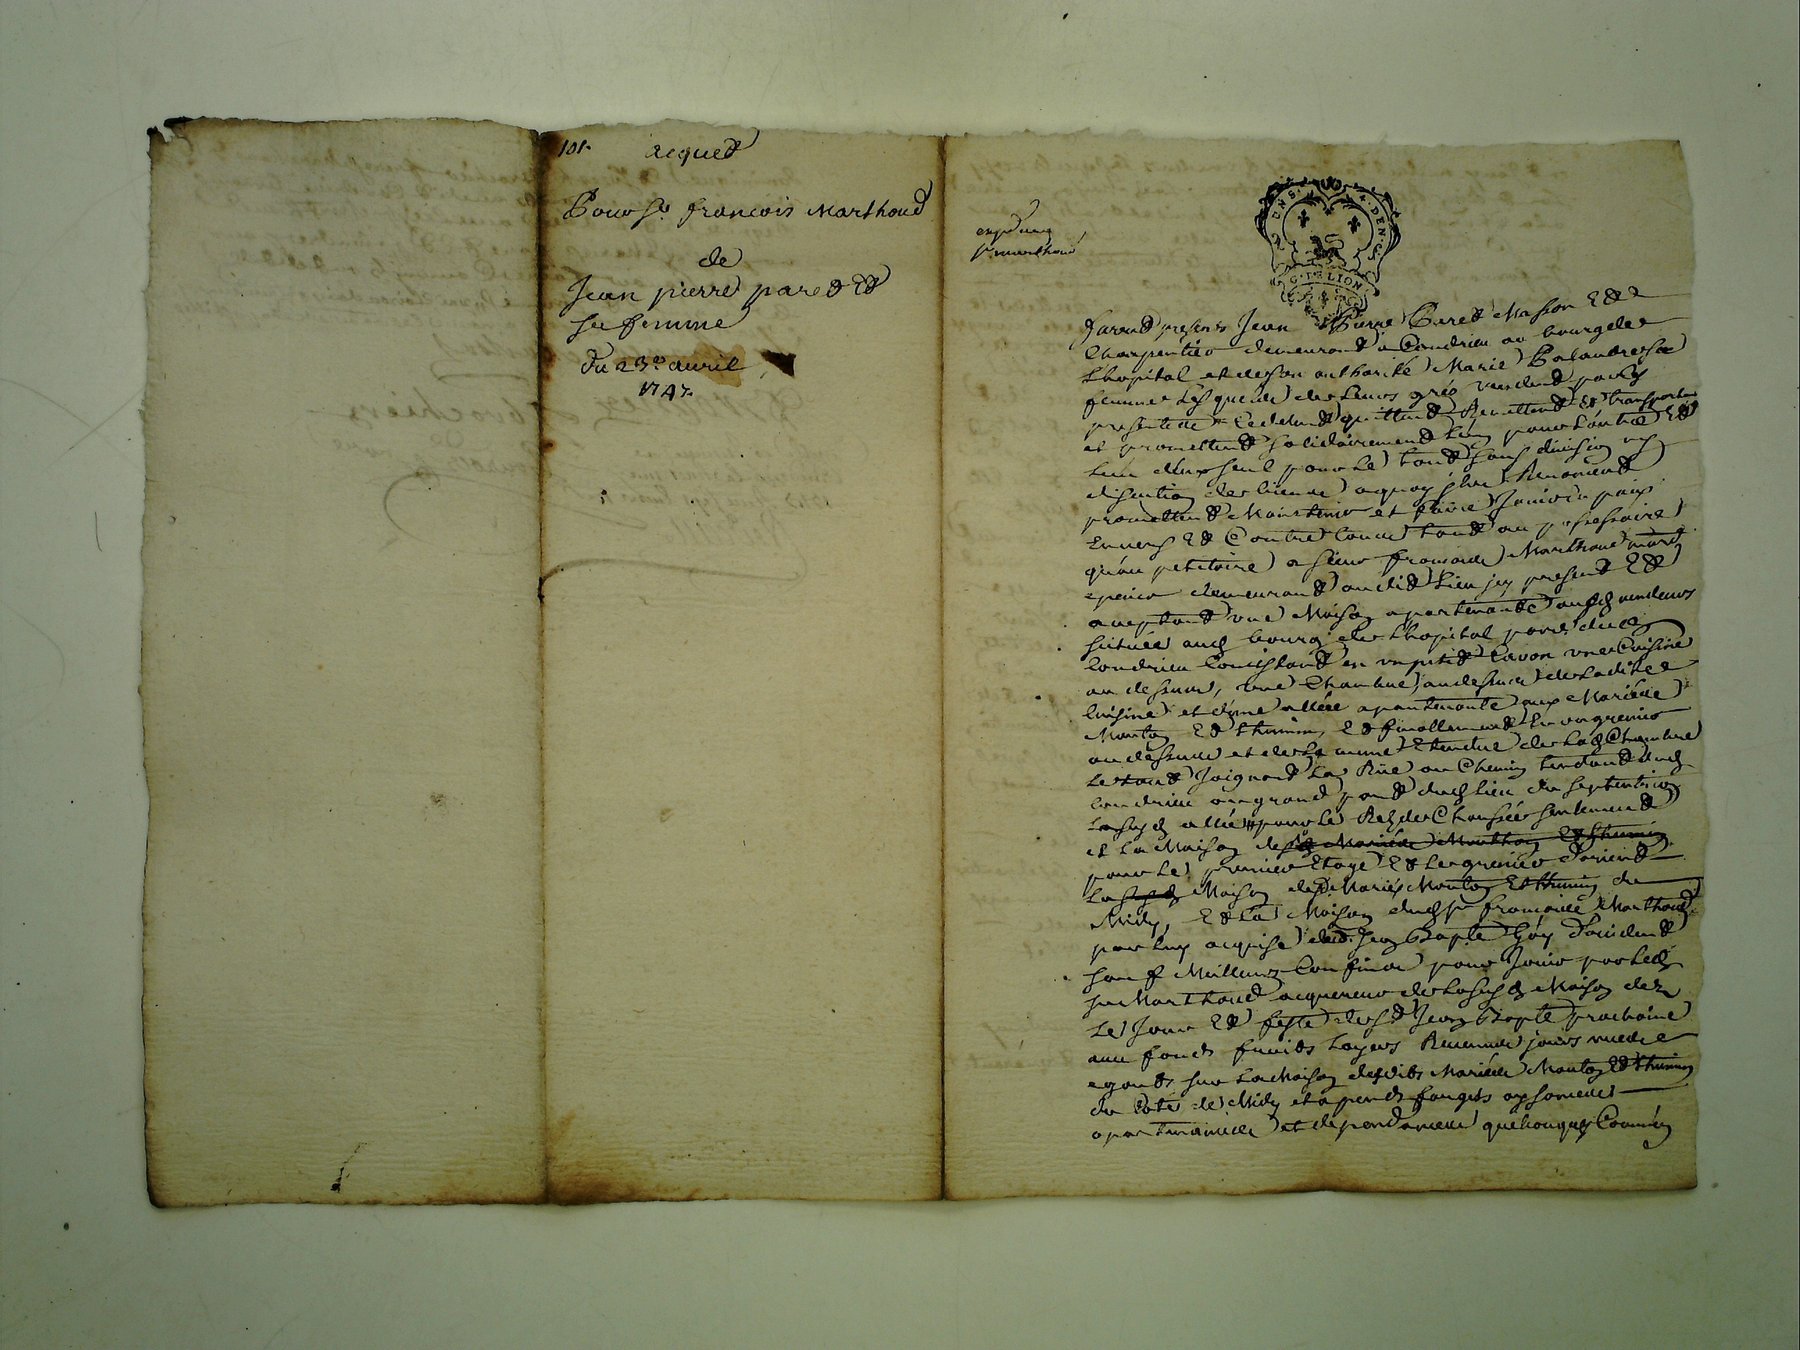 101.
acquet
Pour Sr. francois Marthoud
de
Jean pierre paret Et
sa femme
Du 23e. avril
1747
expedié au
sr marthoud
UNS. 4. DEN.
G. DE LION
furent presents Jean Pierre Paret Masson Et
Charpentier demeurant a Condrieu au bourg de
Lhopital et de son authorité Marie
femme Lesquels de Leurs gréz vendent par ces
presentes Ceddent quittent Remettent Et transportent
et promettent solidairement Lun pour Lautre Et
Lun deux seul pour Le tout sans division ny
discution de biens a quoy ils Renoncent
promettent Maintenir et faire Jouir en paix
Envers Et Contre tous tant au possessoire
quau petitoire a sieur francois Marthoud march
epicier demeurant audit Lieu icy present Et
aceptant une Maison apartenante ausd vendeurs
située aud bourg de Lhopital parr. dud
Condrieu Consistant en un petit Cavon une Cuisine
au dessus, une Chambre audessus de Ladite
Cuisine et dune allée apartenante aux Mariés
Mouton Et thimin, Et finallement En un grenier
au dessus et de la meme Etendue de Lad Chambre
Le tout Joignant La Rüe ou Chemin tendant dud
Condrieu au grand pont dud Lieu du septentrion
Lasusd allée pour Le Rez de Chaussée seulement
et La Maison desd Mariés Mouthon Et thimin
pour Le premier Etage Et Le grenier dorient
La Maison desd Mariés Mouton Et thimin du
Midy, Et La Maison dud sr francois Marthoud
par luy acquise de Jean Bapte doccident
sauf Meilleurs Confins pour Jouir par Led
sr Marthoud acquereur de Lasusd Maison dez
Le Jour Et feste de St Jean Bapte prochaine
aux fonds fruits Loyers Revenus jours vues
egouts sur La Maison desdits Mariés Mouton Et thimin
du Coté de Midy
apartenances et dependances quelconques Comme